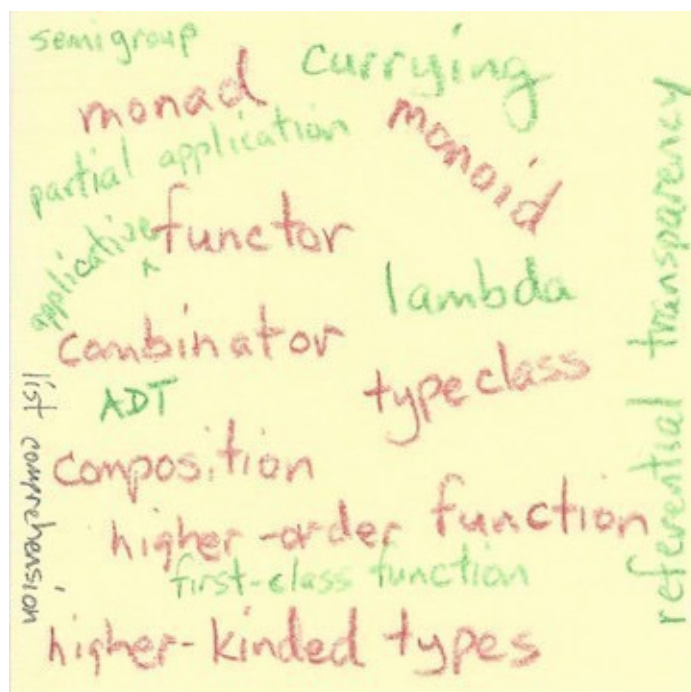 semigroup
currying
monad
monoid
partial application
applicative
^
functor
lambda
combinator
typeclass
ADT
composition
higher-order function
first-class function
higher-kinded types
list comprehension
referential transparency